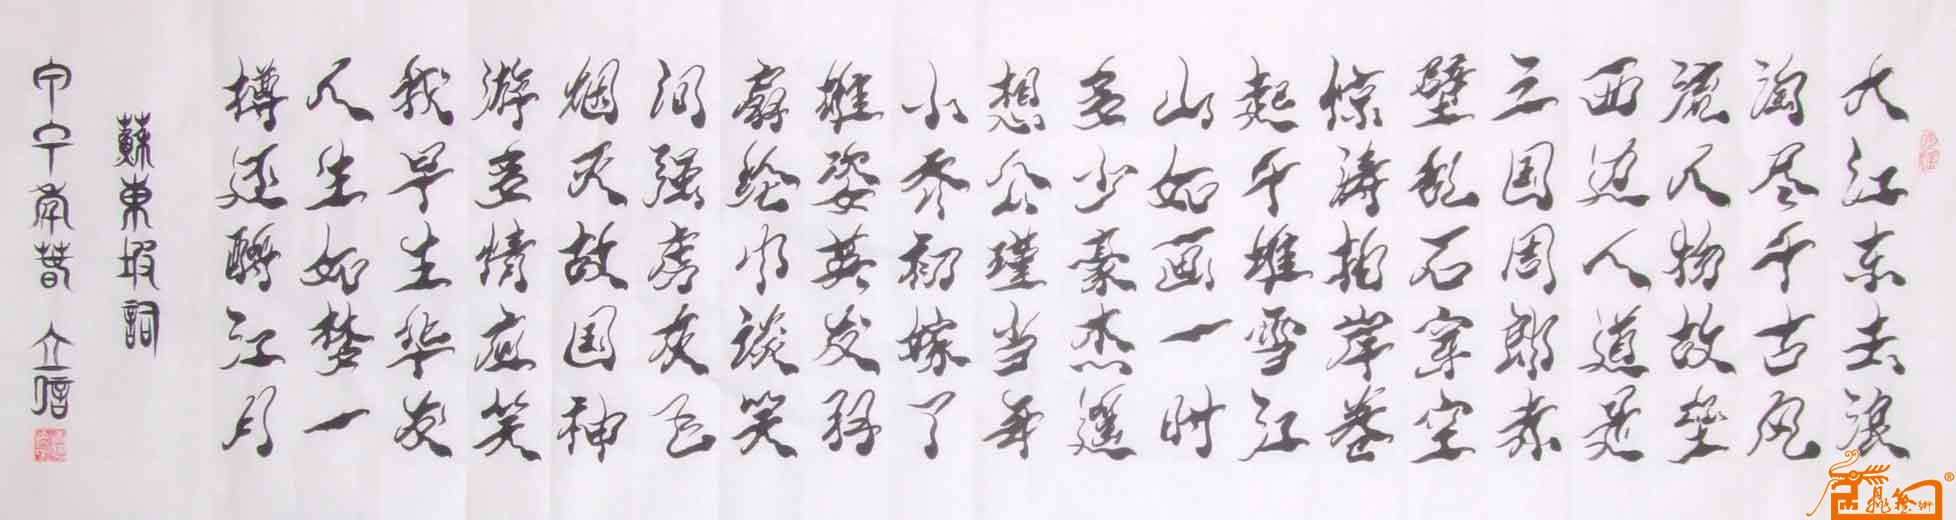 大江东去浪
淘尽千古风
流人物故垒
西边人道是
三国周郎赤
壁乱石穿空
惊涛拍岸卷
起千堆雪江
山如画一时
多少豪杰遥
想公瑾当年
小乔初嫁了
雄姿英发羽
扇纶巾谈笑
间强虏灰飞
烟灭故国神
游多情应笑
我早生华发
人生如梦一
樽还酹江月
蘇東坡詞
甲午年春 立信